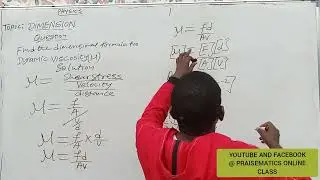 PHYSICS
TOPIC: DIMENSION
Question
Find the dimensional formula for
Dynamic Viscosity(μ)
Solution
μ = Shear stress
Velocity
distance
μ = f/A
v/d
μ = f/A × d/v
μ = fd/Av
μ = fd
Av
YOUTUBE AND FACEBOOK
@ PRAISEMATICS ONLINE
CLASS